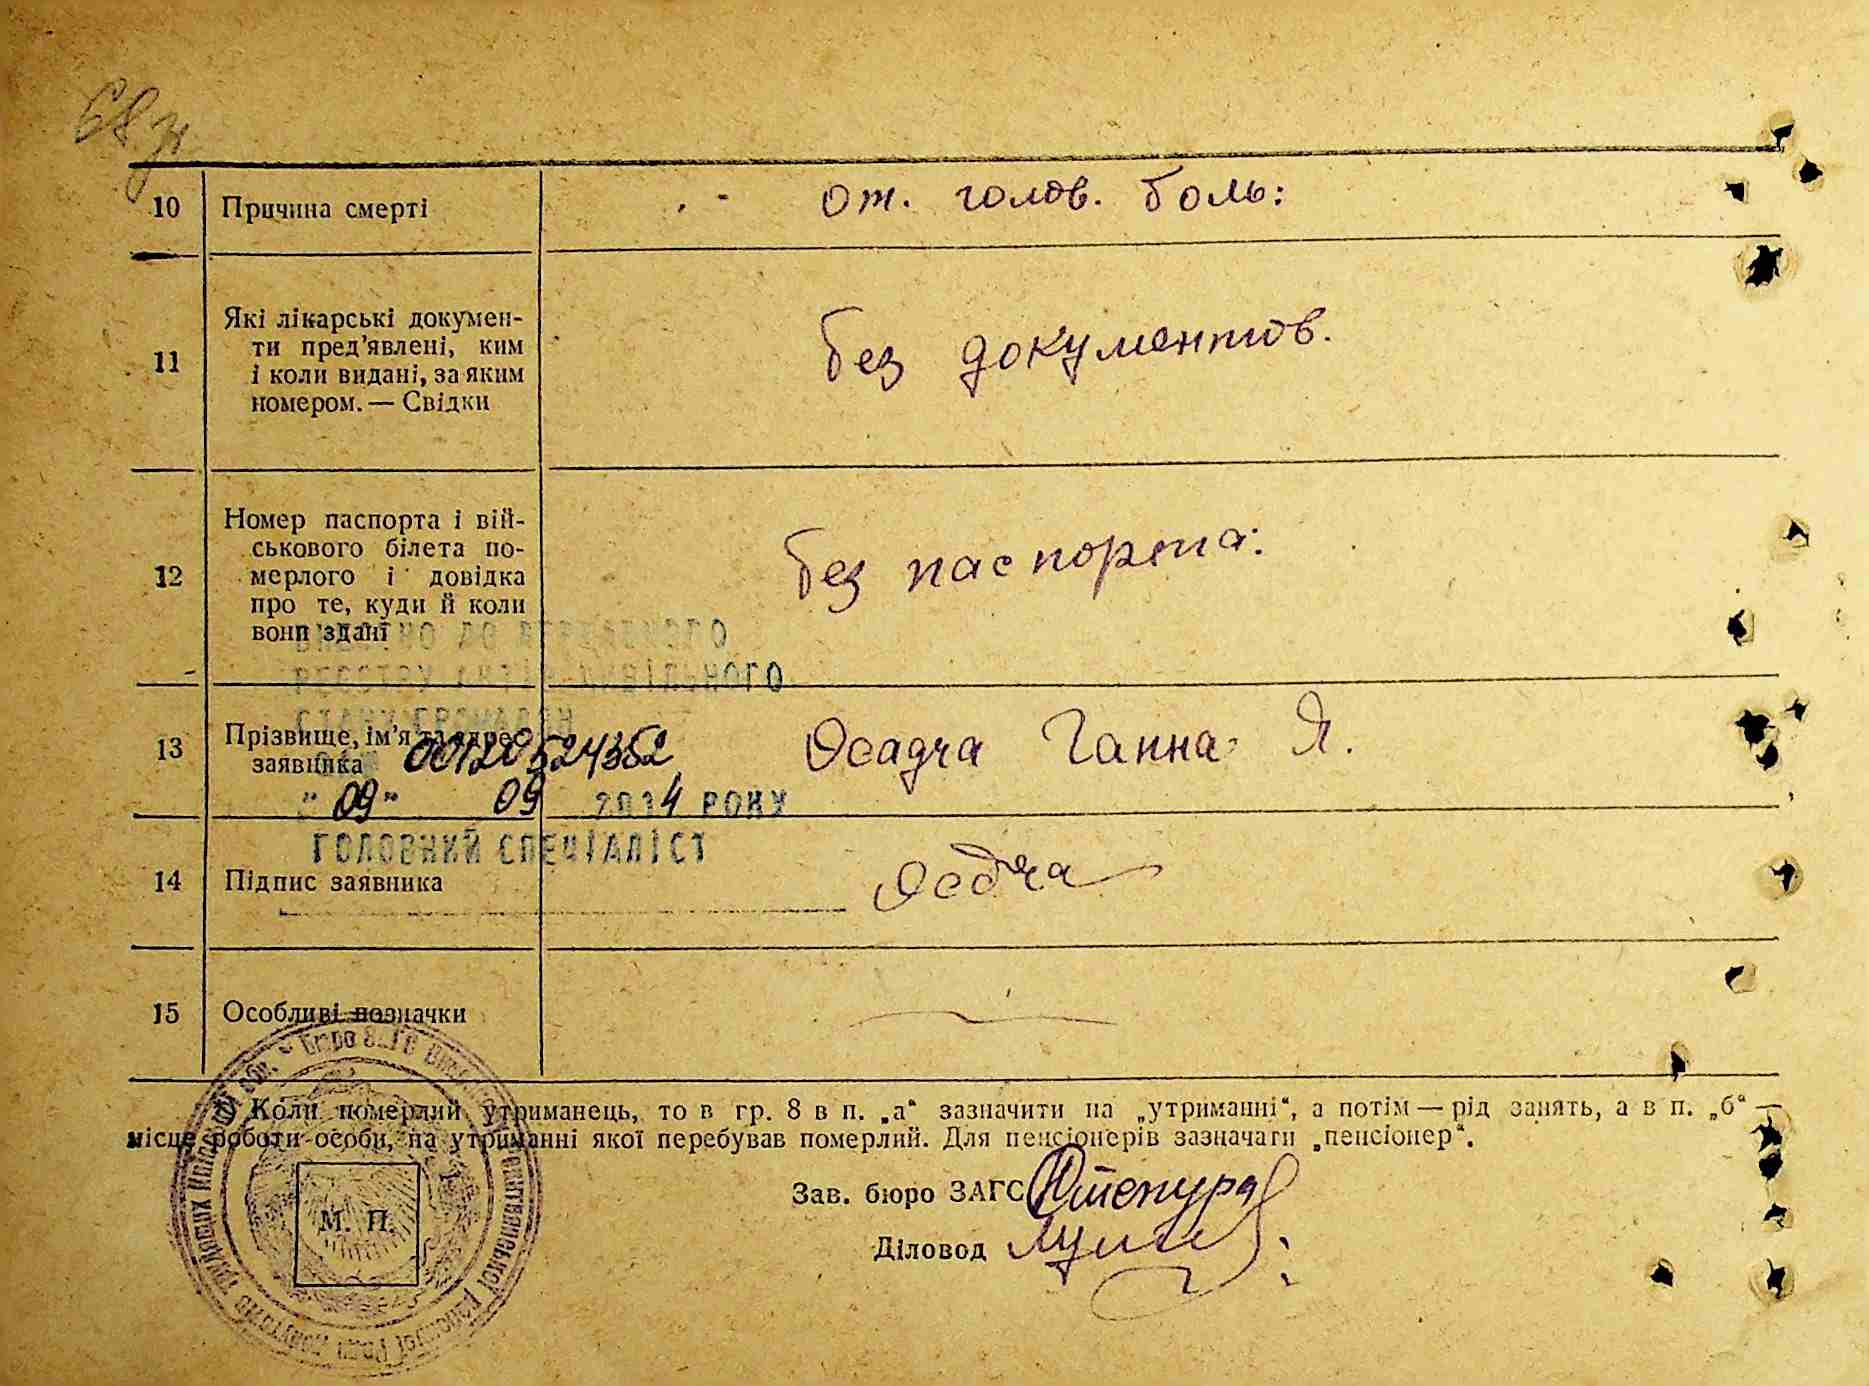 10 Причина смерті от. голов. боль:
11 Які лікарські докумен-
ти пред’явлені, ким
і коли видані, за яким
номером. — Свідки
без документов.
12 Номер паспорта і вій-
ськового білета по-
мерлого і довідка
про те, куди й коли
вони здані
без паспорта:
ВНЕСЕНО ДО ДЕРЖАВНОГО
РЕЄСТРУ АКТІВ ЦИВІЛЬНОГО
СТАНУ ГРОМАДЯН
13 Прізвище, ім’я та адрес
заявника
Осадча Ганна Я.
00120524352
"09" 09 2014 РОКУ
ГОЛОВНИЙ СПЕЦІАЛІСТ
14 Підпис заявника Осдча
15 Особливі позначки
Коли померлий утриманець, то в гр. 8 в п. „а“ зазначити на „утриманні“, а потім — рід занять, а в п. „б“ —
місце роботи особи, на утриманні якої перебував померлий. Для пенсіонерів зазначати „пенсіонер“.
Зав. бюро ЗАГС
Діловод
М. П.